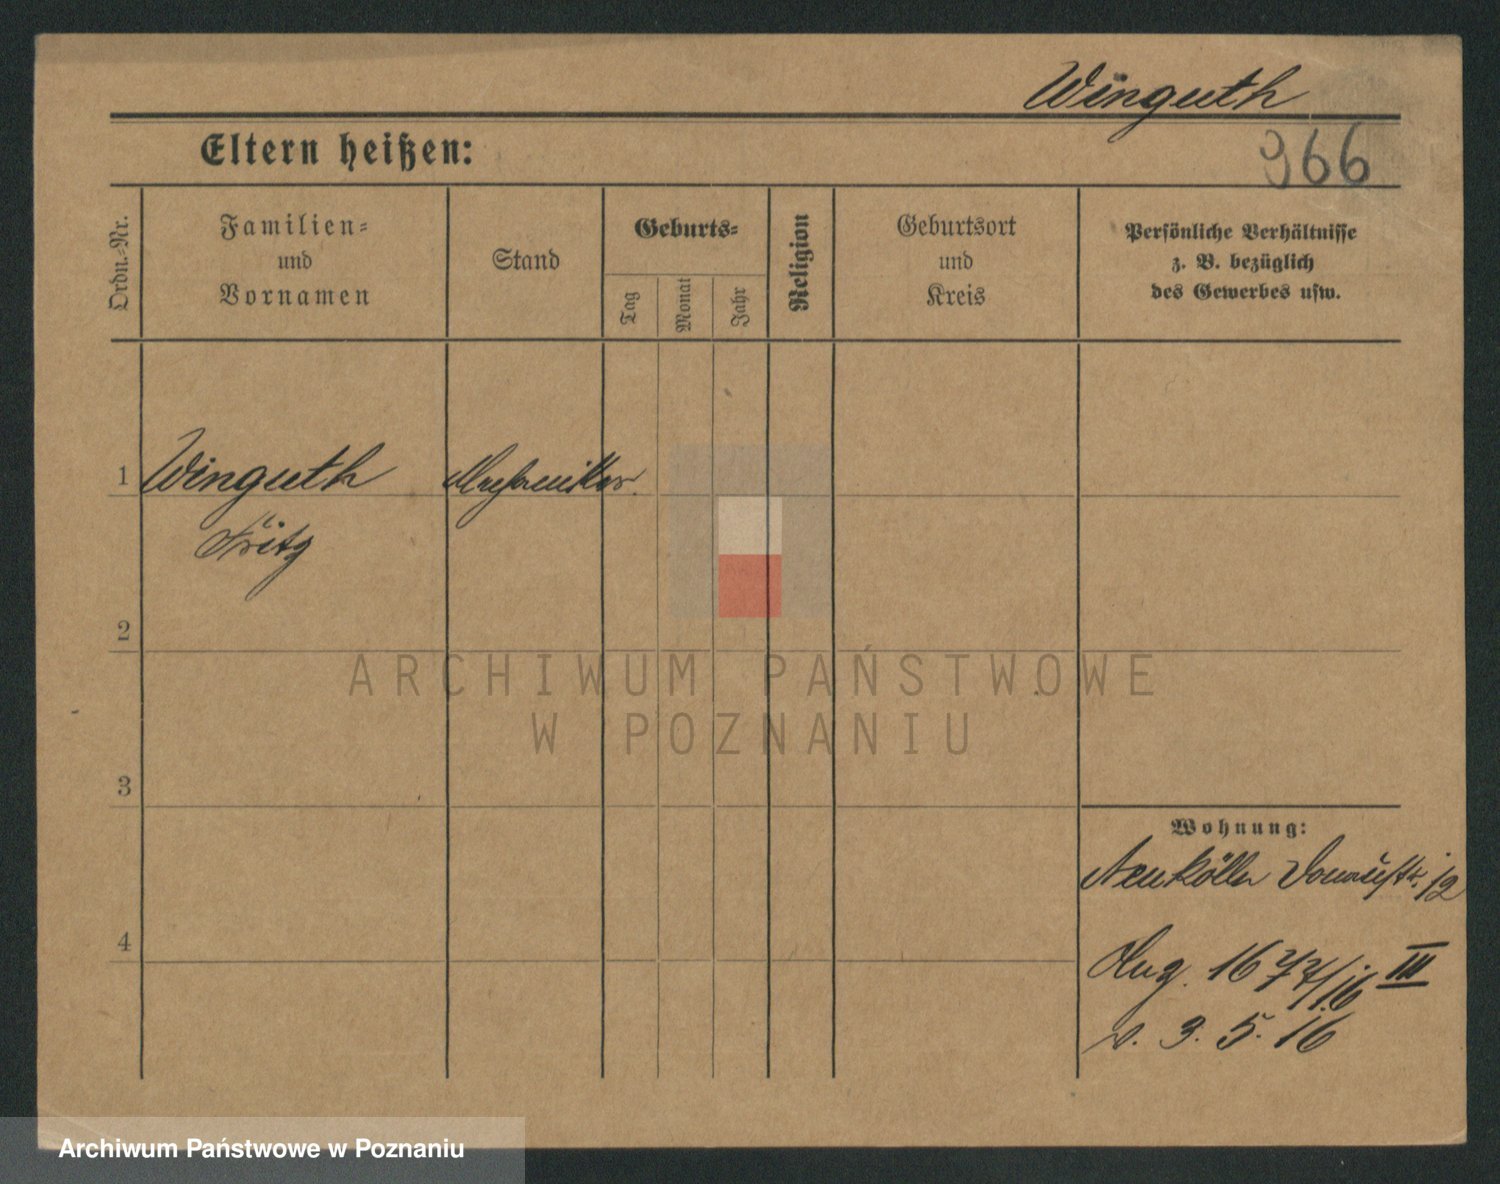 Winguth
966
Eltern heißen:
Ordn.-Nr.
Familien-
und
Vornamen
Stand
Geburts-
Tag
Monat
Jahr
Religion
Geburtsort
und
Kreis
Persönliche Verhältnisse
z. B. bezüglich
des Gewerbes usw.
1 Winguth Mechaniker
Fritz
2
ARCHIWUM PAŃSTWOWE
W POZNANIU
3
Wohnung:
Neukölln Donaustr. 12
4
Aug. 16 III
v. 3. 5. 16
Archiwum Państwowe w Poznaniu